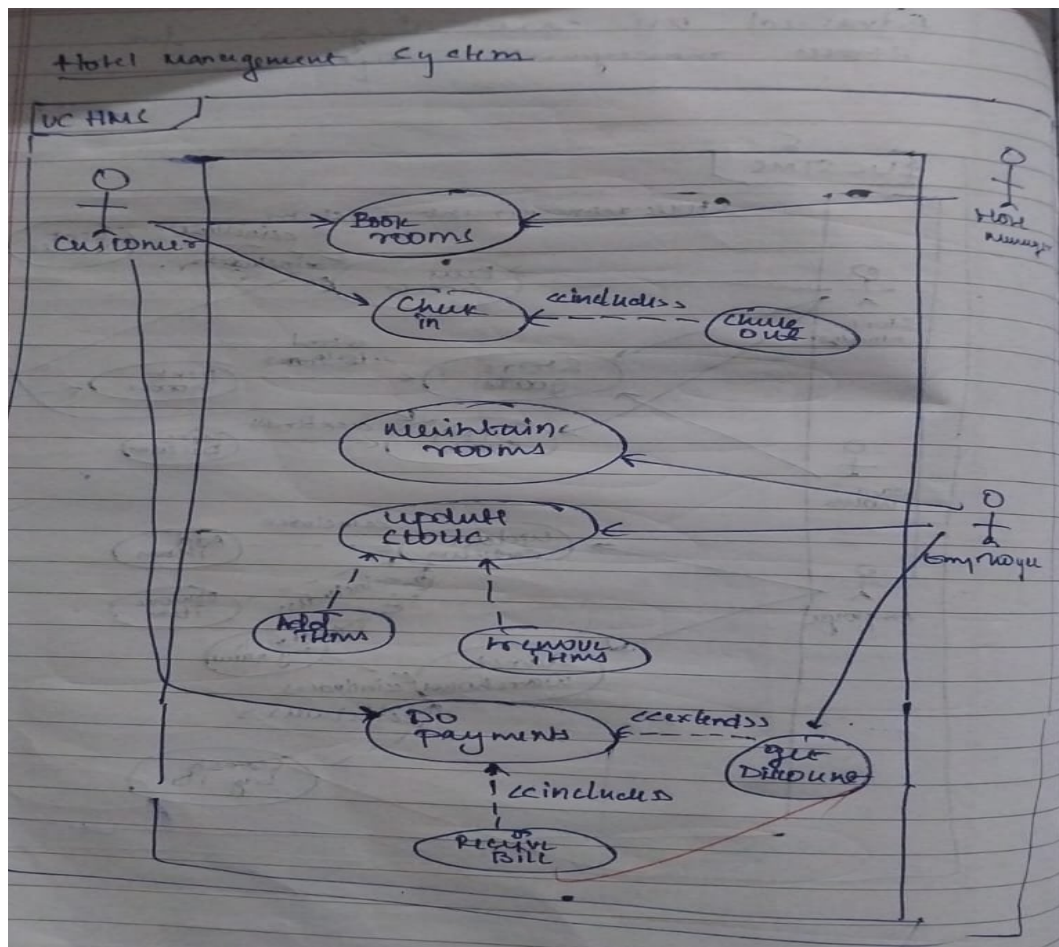 Hotel Management System
UC HMS
Customer
Book
rooms
Hotel
Manager
Check
in
<<includes>>
Check
out
Maintain
rooms
update
stock
Employee
Add
items
remove
items
Do
payments
<<extend>>
get
Discount
<<includes>>
Receive
Bill